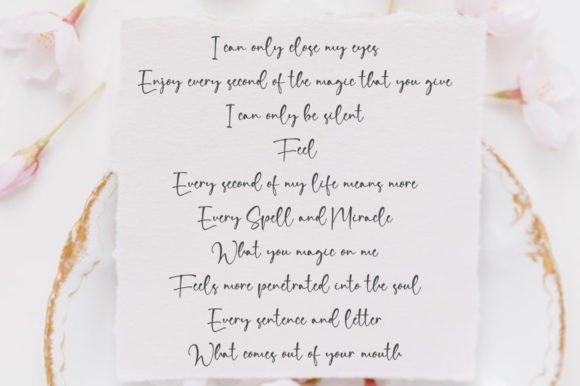 I can only close my eyes
Enjoy every second of the magic that you give
I can only be silent
Feel
Every second of my life means more
Every Spell and Miracle
What you magic on me
Feels more penetrated into the soul
Every sentence and letter
What comes out of your mouth